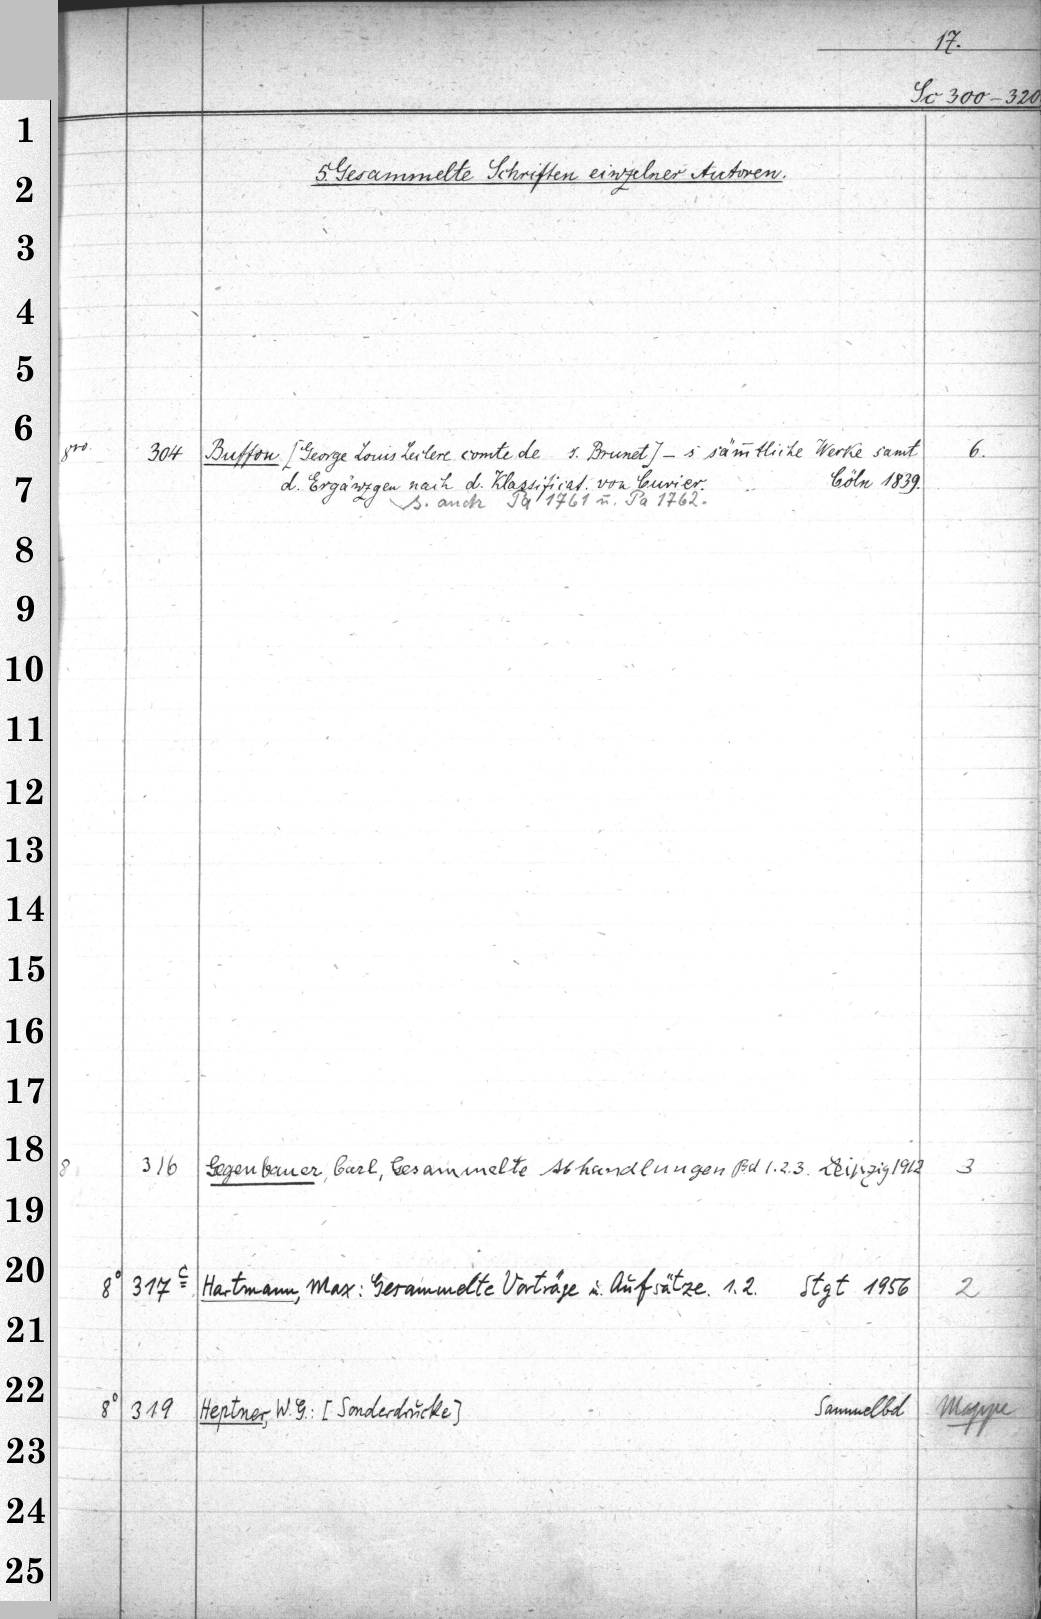 17.
Sc 300-320
1
2
3
4
5
6
7
8
9
10
11
12
13
14
15
16
17
18
19
20
21
22
23
24
25
5. Gesammelte Schriften einzelner Autoren.
8vo. 304 Buffon [George Louis Leclerc comte de s. Brunet] – s säm̄tliche Werke samt 6.
d. Ergänzgen nach d. Klassificat. von Cuvier. Cöln 1839.
s. auch Pa 1761 u. Pa 1762.
8 316 Gegenbauer, Carl, Gesammelte Abhandlungen Bd 1.2.3. Leipzig 1912 3
8° 317 c Hartmann, Max: Gesammelte Vorträge u. Aufsätze. 1.2. Stgt 1956 2
8° 319 Heptner, W.G.: [Sonderdrucke] Sammelbd Mappe